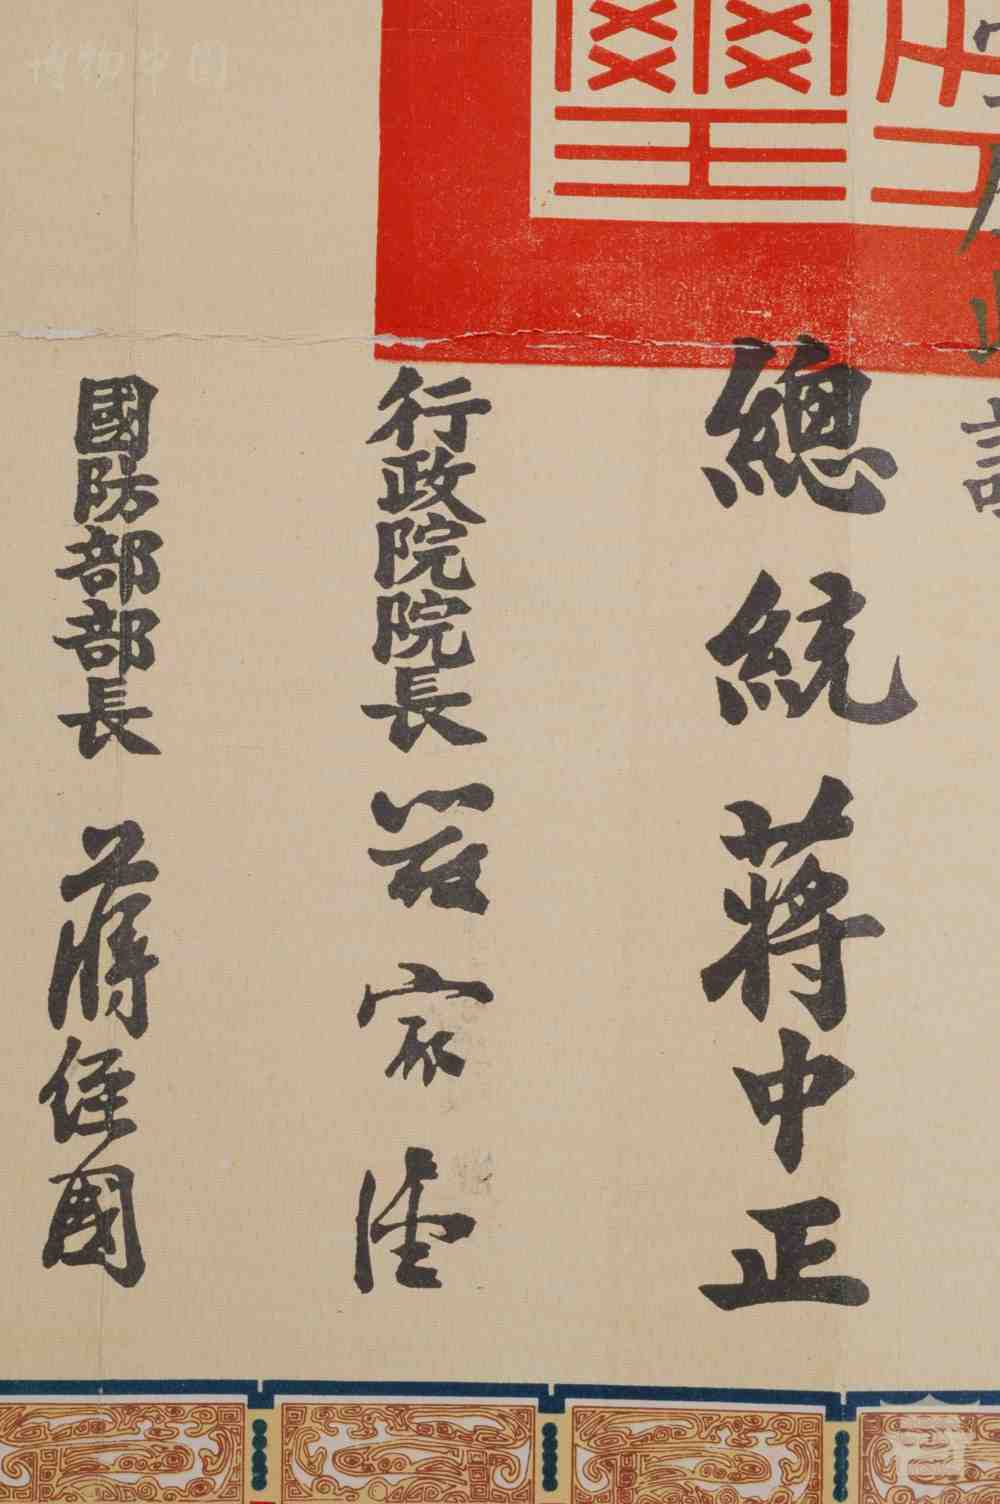 總統蔣中正
行政院院長嚴家淦
國防部部長蔣經國
博物中國